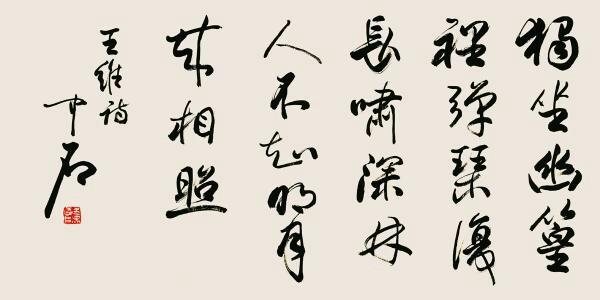 獨坐幽篁
裡彈琴復
長嘯深林
人不知明月
來相照
王維詩
中石